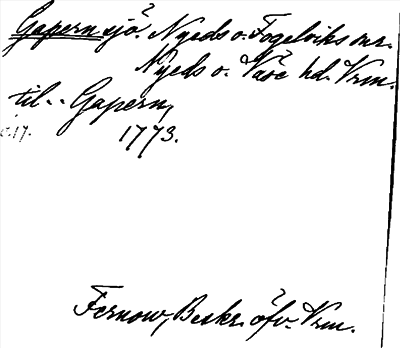 Gapern sjö. Nyeds o. Fogelviks snr.
Nyeds o. Väse hd. Vrm.
til.. Gapern,
1773.
Fernow, Beskr. öfv. Vrm.